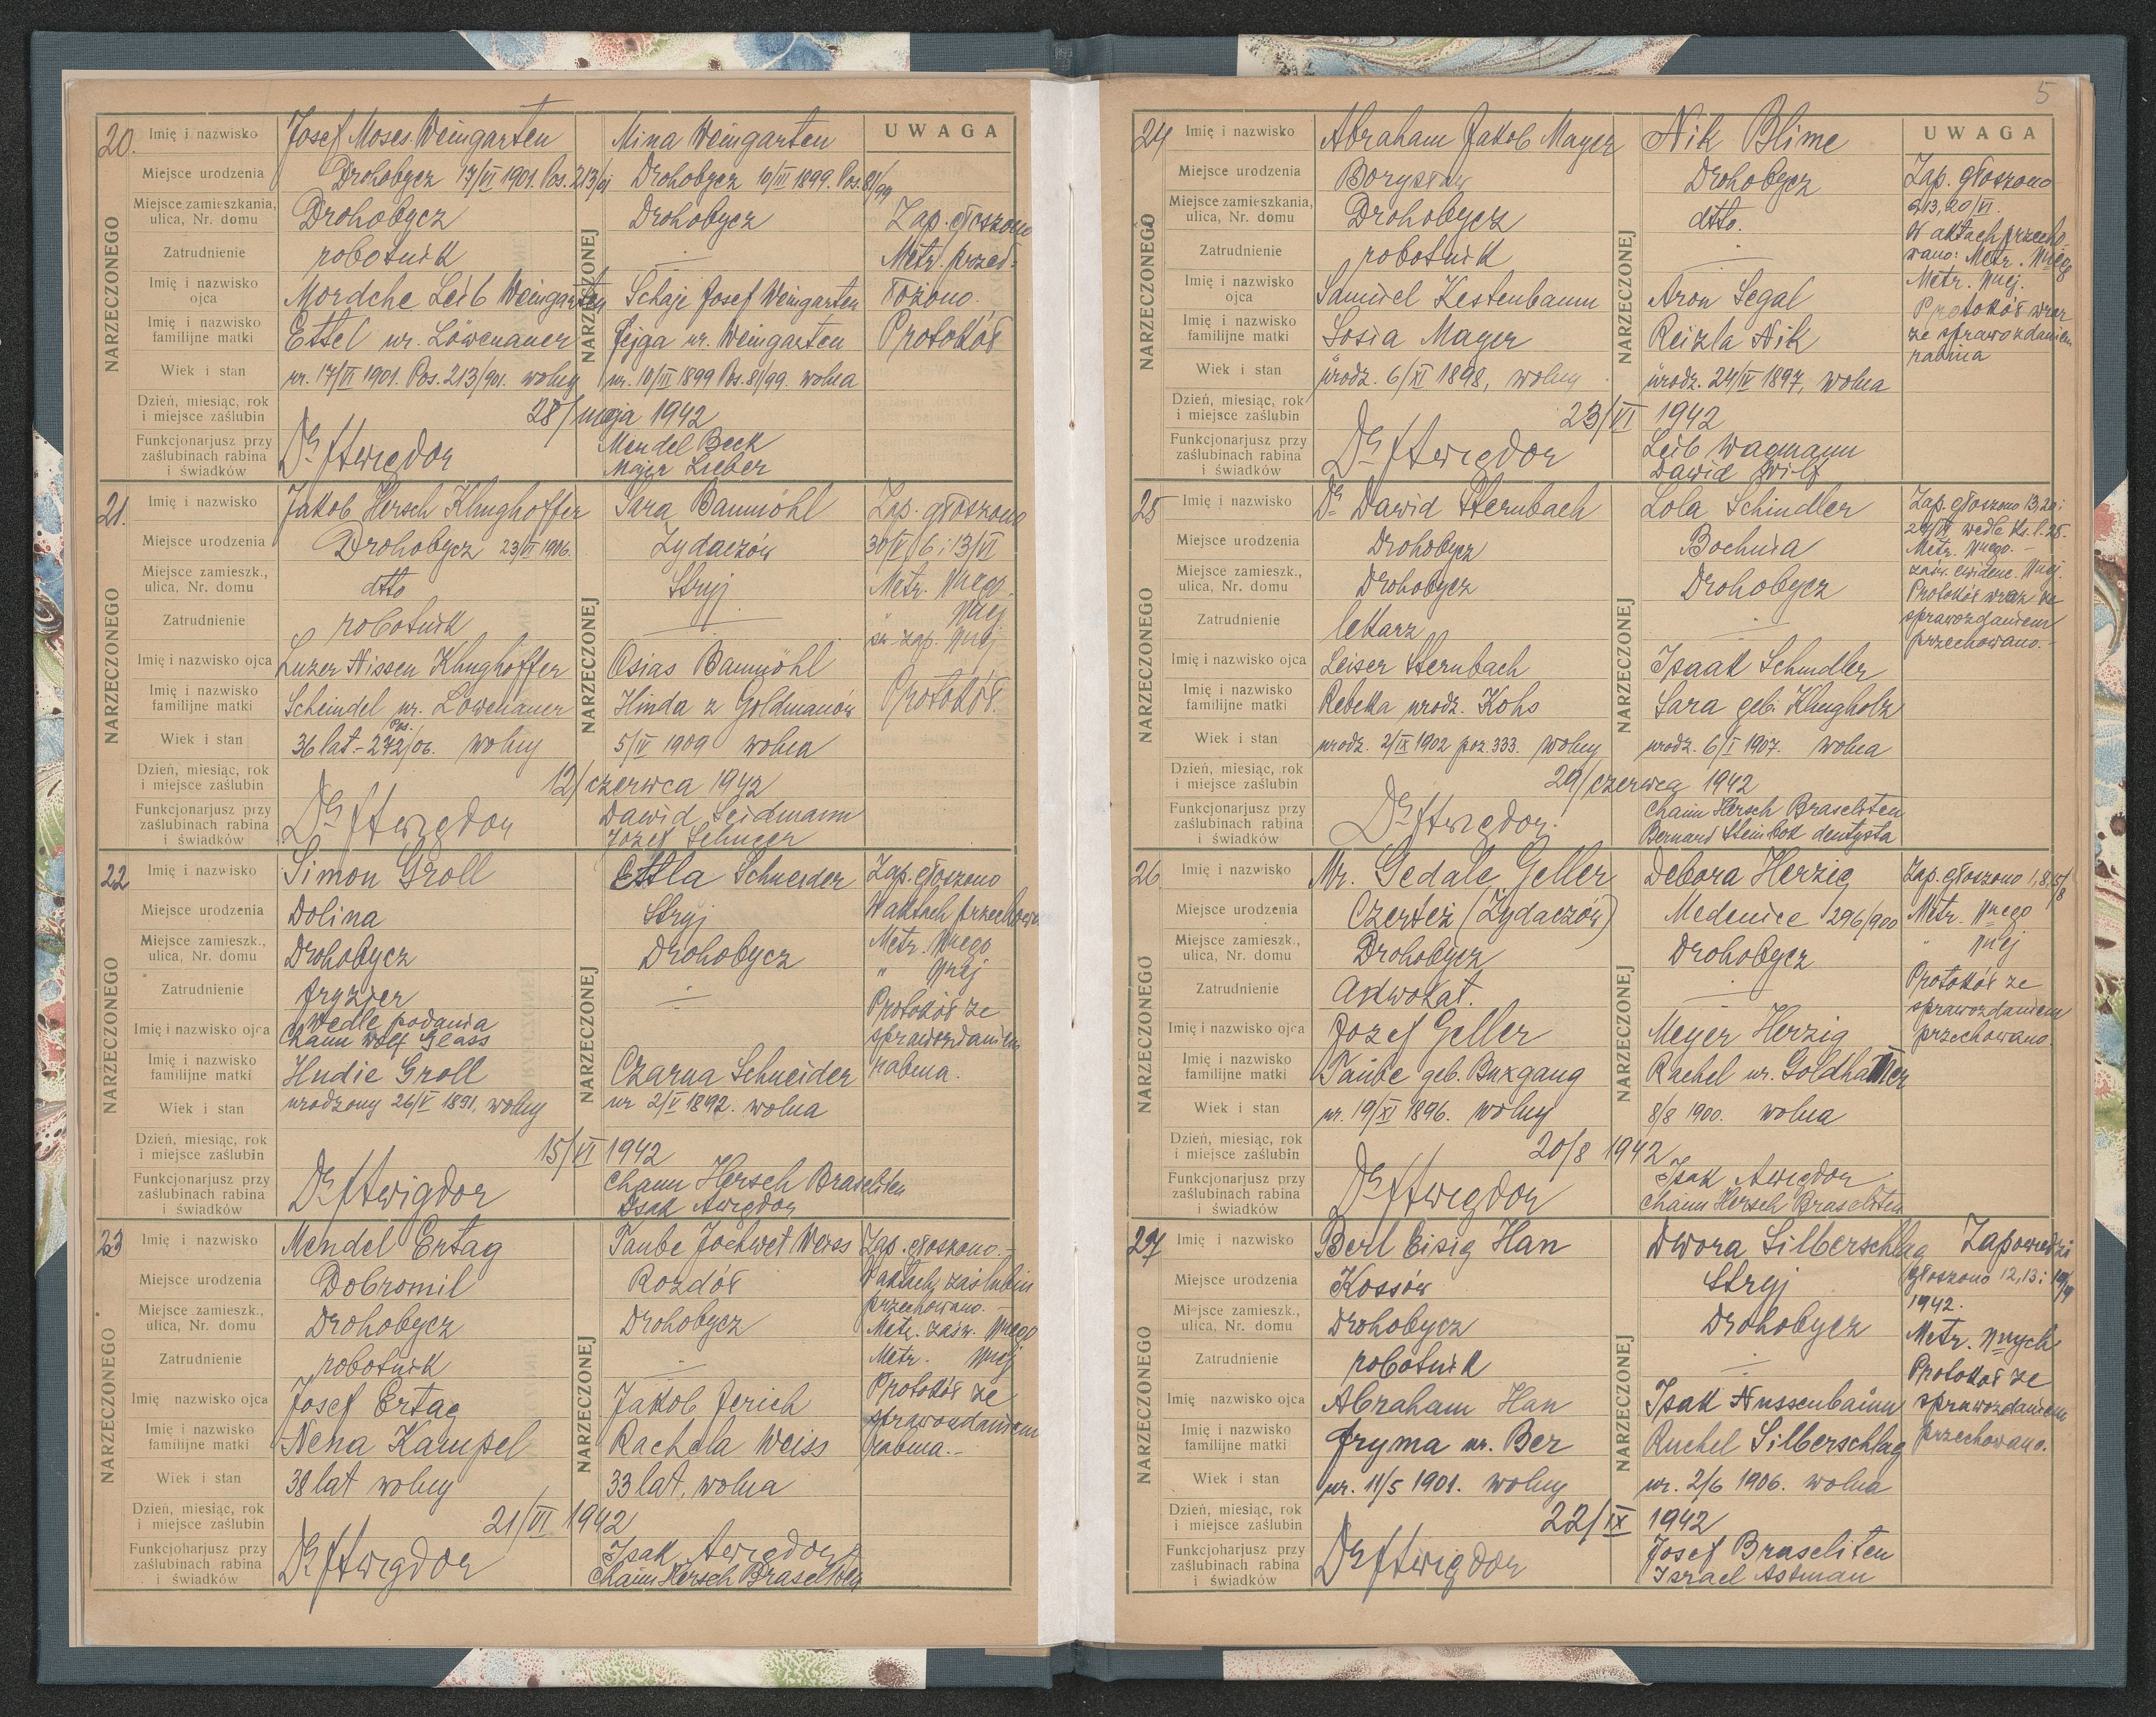 20.
NARZECZONEGO
NARZECZONEJ
UWAGA
Imię i nazwisko Josef Moses Weingarten Mina Weingarten
Miejsce urodzenia Drohobycz 17/VI 1901. Pos. 213/01 Drohobycz 10/III 1899. Pos. 81/99
Miejsce zamieszkania, ulica, Nr. domu Drohobycz Drohobycz
Zatrudnienie robotnik —
Imię i nazwisko ojca Mordche Leib Weingarten Schaje Josef Weingarten
Imię i nazwisko familijne matki Ettel ur. Löwenauer Fejga ur. Weingarten
Wiek i stan ur. 17/VI 1901. Pos. 213/901. wolny ur. 10/III 1899 Pos. 81/99. wolna
Dzień, miesiąc, rok i miejsce zaślubin 28/maja 1942
Funkcjonarjusz przy zaślubinach rabina i świadków Dr Awigdor
Mendel Beck
Majer Lieber
Zap. głoszono
Metr. przed-
łożono.
Protokół
21.
NARZECZONEGO
NARZECZONEJ
Imię i nazwisko Jakob Hersch Klinghoffer Sara Baumöhl
Miejsce urodzenia Drohobycz 23/VI 1906. Żydaczów
Miejsce zamieszk., ulica, Nr. domu dtto Stryj
Zatrudnienie robotnik —
Imię i nazwisko ojca Luzer Nissen Klinghoffer Osias Baumöhl
Imię i nazwisko familijne matki Scheindel ur. Löwenauer Hinda z Goldmanów
Wiek i stan 36 lat - Pos. 272/06. wolny 5/IV 1909 wolna
Dzień, miesiąc, rok i miejsce zaślubin 12/czerwca 1942
Funkcjonarjusz przy zaślubinach rabina i świadków Dr Awigdor
Dawid Seidmann
Zap. głoszono
30/V, 6 i 13/VI
Metr. N\nego.
" N\nej
N\nej
Protokół.
22
NARZECZONEGO
NARZECZONEJ
Imię i nazwisko Simon Groll Ettla Schneider
Miejsce urodzenia Dolina Stryj
Miejsce zamieszk., ulica, Nr. domu Drohobycz Drohobycz
Zatrudnienie fryzjer —
Imię i nazwisko ojca wedle podania
Chaim Wolf Glass
Imię i nazwisko familijne matki Hudie Groll Czarna Schneider
Wiek i stan urodzony 26/V 1891, wolny ur 2/V 1892. wolna
Dzień, miesiąc, rok i miejsce zaślubin 15/VI 1942
Funkcjonarjusz przy zaślubinach rabina i świadków Dr Awigdor
Chaim Hersch Braseliten
Isak Awigdor
Zap. głoszono
W aktach przechow.
Metr. N\nego
" N\nej
Protokół ze
sprawozdaniem
rabina.
23
NARZECZONEGO
NARZECZONEJ
Imię i nazwisko Mendel Ertag Taube Jochwet Weiss
Miejsce urodzenia Dobromil Rozdół
Miejsce zamieszk., ulica, Nr. domu Drohobycz Drohobycz
Zatrudnienie robotnik —
Imię nazwisko ojca Josef Ertag Jakob Jerich
Imię i nazwisko familijne matki Nena Kampel Rachela Weiss
Wiek i stan 38 lat wolny 33 lat, wolna
Dzień, miesiąc, rok i miejsce zaślubin 21/VI 1942
Funkcjoharjusz przy zaślubinach rabina i świadków Dr Awigdor
Isak Awigdor
Chaim Hersch Braseliten
Zap. głoszono.
W aktach zaślubin
przechowano. -
Metr. zaśw. N\nego
Metr. N\nej
Protokół ze
sprawozdaniem
rabina. -
5
24
NARZECZONEGO
NARZECZONEJ
UWAGA
Imię i nazwisko Abraham Jakob Mayer Nik Blime
Miejsce urodzenia Borysław Drohobycz
Miejsce zamieszkania, ulica, Nr. domu Drohobycz dtto.
Zatrudnienie robotnik —
Imię i nazwisko ojca Samuel Kestenbaum Aron Segal
Imię i nazwisko familijne matki Sosia Mayer Reizla Nik
Wiek i stan urodz. 6/XI 1898, wolny urodz. 24/IV 1897, wolna
Dzień, miesiąc, rok i miejsce zaślubin 23/VI 1942
Funkcjonarjusz przy zaślubinach rabina i świadków Dr Awigdor
Leib Wagmann
Dawid Wilf
Zap. głoszono
6, 13, 20/VI.
W aktach przecho-
wano: Metr. N\nego
Metr. N\nej.
Protokół wraz
ze sprawozdaniem
rabina
25
NARZECZONEGO
NARZECZONEJ
Imię i nazwisko Dr Dawid Sternbach Lola Schindler
Miejsce urodzenia Drohobycz Bochnia
Miejsce zamieszk., ulica, Nr. domu Drohobycz Drohobycz
Zatrudnienie lekarz —
Imię i nazwisko ojca Leiser Sternbach Isaak Schindler
Imię i nazwisko familijne matki Rebeka urodz. Kohs Sara geb. Klugholz
Wiek i stan urodz. 2/IX 1902 poz. 333. wolny urodz. 6/I 1907. wolna
Dzień, miesiąc, rok i miejsce zaślubin 29/czerwca 1942
Funkcjonarjusz przy zaślubinach rabina i świadków Dr Awigdor.
Chaim Hersch Braseliten
Bernard Steinbok dentysta
Zap. głoszono 13, 20 i
27/VI wedle Ks. l. 25.
Metr. N\nego. -
zaśw. ewidenc. N\nej.
Protokół wraz ze
sprawozdaniem
przechowano. -
26
NARZECZONEGO
NARZECZONEJ
Imię i nazwisko Mr. Gedale Geller Debora Herzig
Miejsce urodzenia Czerteż (Żydaczów) Medenice 296/900
Miejsce zamieszk., ulica, Nr. domu Drohobycz Drohobycz
Zatrudnienie Adwokat. —
Imię i nazwisko ojca Jozef Geller Meyer Herzig
Imię i nazwisko familijne matki Taube geb. Buxgang Rachel ur. Goldhamer
Wiek i stan ur. 19/XI 1896. wolny 8/8 1900. wolna
Dzień, miesiąc, rok i miejsce zaślubin 20/8 1942
Funkcjonarjusz przy zaślubinach rabina i świadków Dr Awigdor
Isak Awigdor
Chaim Hersch Braseliten
Zap. głoszono 1, 8, 15/8
Metr. N\nego
" N\nej
Protokół ze
sprawozdaniem
przechowano.
27
NARZECZONEGO
NARZECZONEJ
Imię i nazwisko Berl Eisig Han Dwora Silberschlag
Miejsce urodzenia Kossów Stryj
Miejsce zamieszk., ulica, Nr. domu Drohobycz Drohobycz
Zatrudnienie robotnik —
Imię nazwisko ojca Abraham Han Isak Nussenbaum
Imię i nazwisko familijne matki Fryma ur. Ber Ruchel Silberschlag
Wiek i stan ur. 11/5 1901. wolny ur. 2/6 1906. wolna
Dzień, miesiąc, rok i miejsce zaślubin 22/IX 1942
Funkcjoharjusz przy zaślubinach rabina i świadków Dr Awigdor
Josef Braseliten
Israel Astman
Zapowiedzi
głoszono 12, 13 i 19/9
1942.
Metr. N\nych
Protokół ze
sprawozdaniem
przechowano.